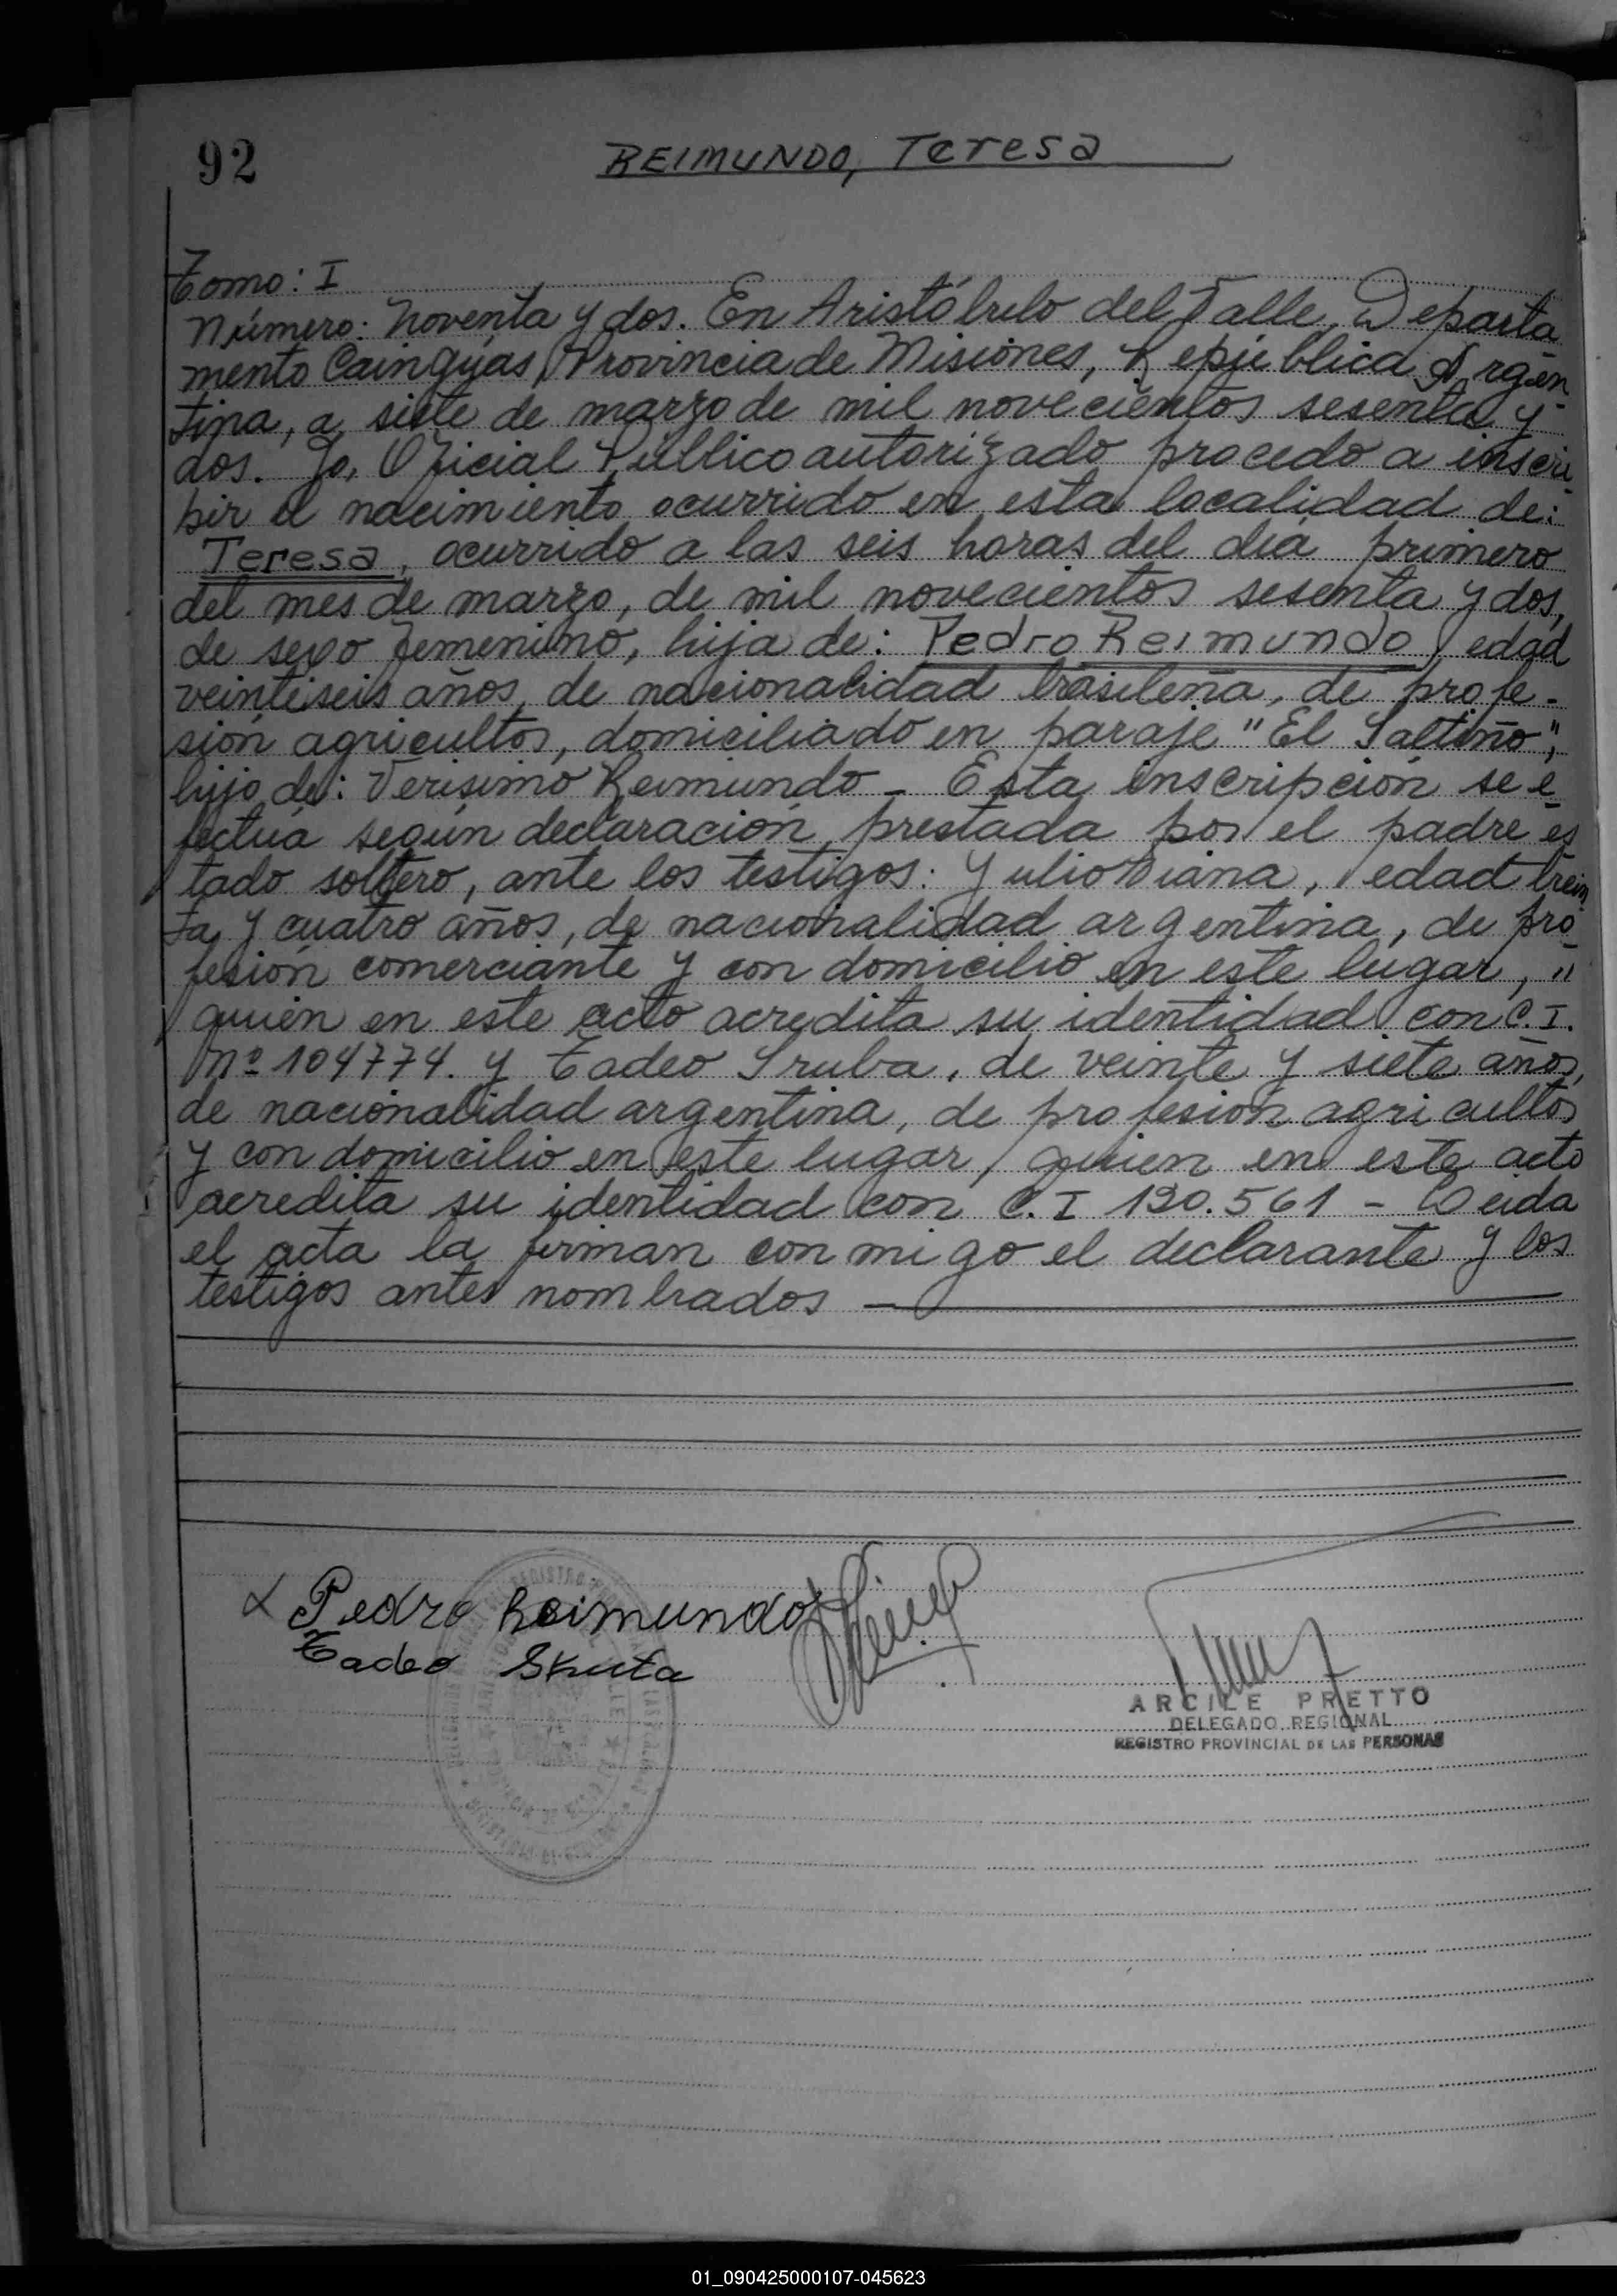 92
REIMUNDO, Teresa
Tomo: I
Número: Noventa y dos. En Aristóbulo del Valle, Departa
mento Cainguas, Provincia de Misiones, República Argen
tina, a siete de marzo de mil novecientos sesenta y
dos. Yo, Oficial Público autorizado procedo a inscri
bir el nacimiento ocurrido en esta localidad de:
Teresa, ocurrido a las seis horas del día primero
del mes de marzo, de mil novecientos sesenta y dos,
de sexo femenino, hija de: Pedro Reimundo, edad
veintiseis años, de nacionalidad brasileña, de profe-
sión agricultor, domiciliado en paraje "El Saltiño",
hijo de: Verisimo Reimundo - Esta inscripción se e
fectúa según declaración prestada por el padre es
tado soltero, ante los testigos: Yulio Viana, edad trein
ta y cuatro años, de nacionalidad argentina, de pro
fesión comerciante y con domicilio en este lugar, "
quién en este acto acredita su identidad con C.I.
Nº 104774. y Tadeo Sruba, de veinte y siete años,
de nacionalidad argentina, de profesión agricultor
y con domicilio en este lugar, quien en este acto
acredita su identidad con C.I 130.561 - Leida
el acta la firman con migo el declarante y los
testigos antes nombrados —
Pedro Reimundo
Tadeo
ARCILE PRETTO
DELEGADO REGIONAL
REGISTRO PROVINCIAL DE LAS PERSONAS
01_090425000107-045623